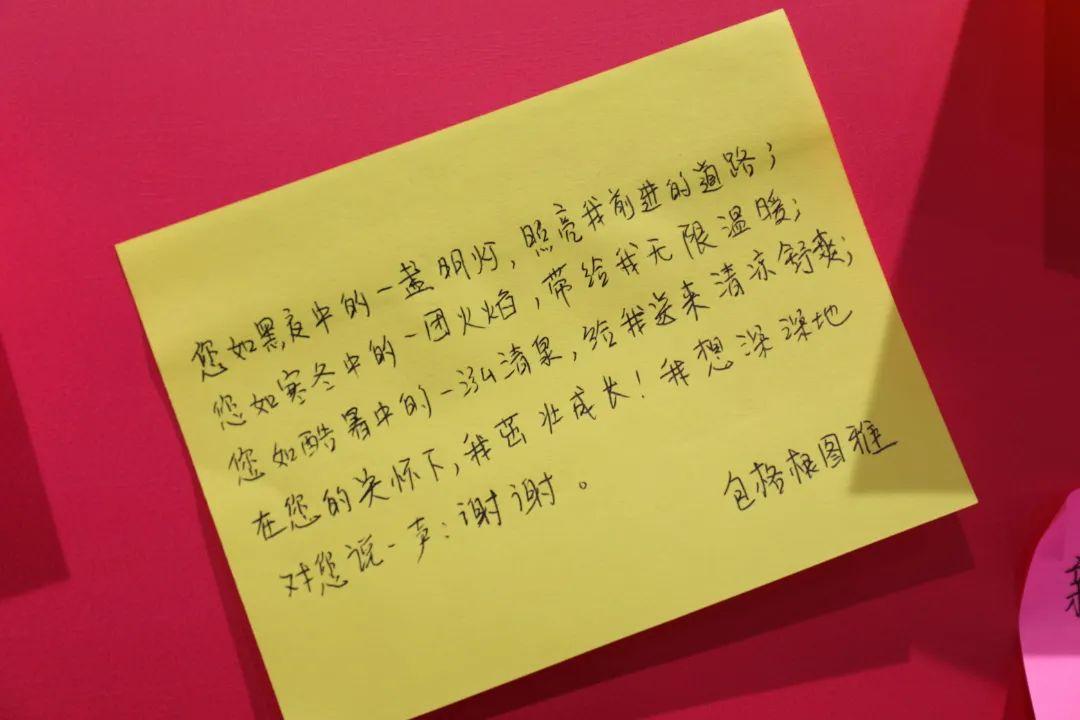 您如黑夜中的一盏明灯，照亮我前进的道路；
您如寒冬中的一团火焰，带给我无限温暖；
您如酷暑中的一泓清泉，给我送来清凉舒爽；
在您的关怀下，我茁壮成长！我想深深地
对您说一声：谢谢。
包格根图雅